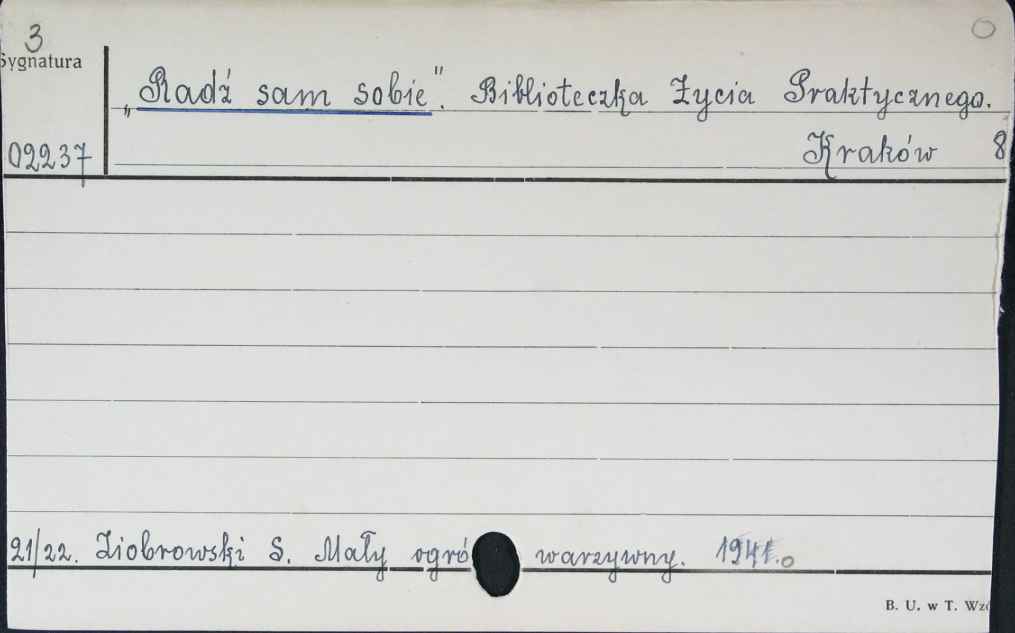 3
Sygnatura
„Radź sam sobie". Biblioteczka Życia Praktycznego.
02237 Kraków 8
21/22. Ziobrowski S. Mały ogró warzywny. 1941.
B. U. w T. Wzó